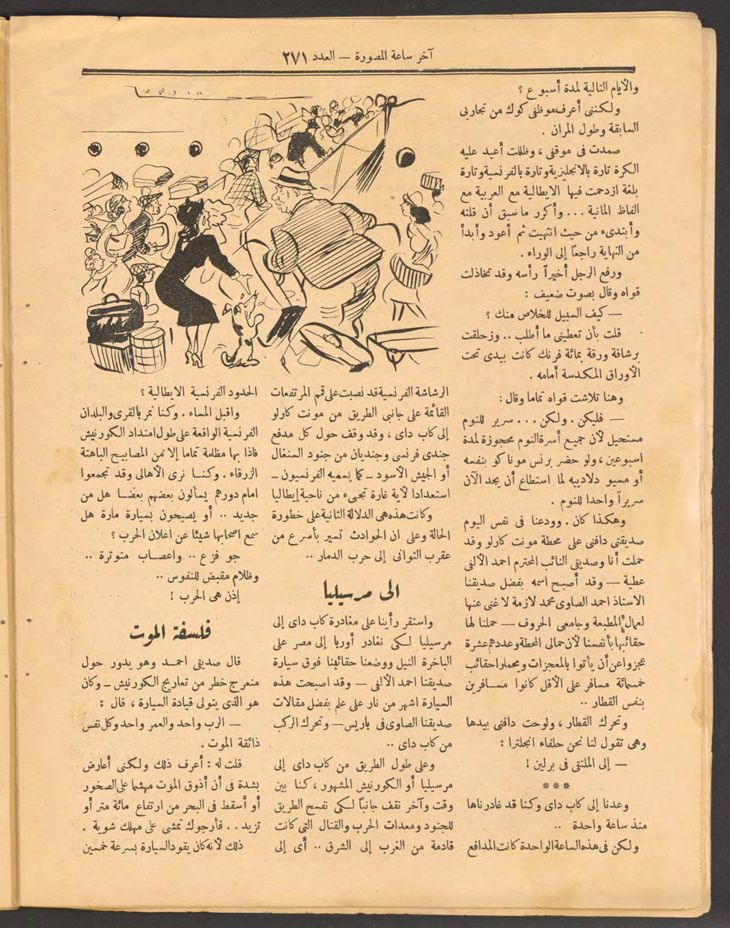 آخر ساعة المصورة — العدد ٢٧١
والأيام التالية لمدة أسبوع ؟
ولكننى أعرف موظفى كوك من تجاربى
السابقة وطول المران .
صمدت فى موقفى ، وظللت أعيد عليه
الكرة تارة بالانجليزية وتارة بالفرنسية وتارة
بلغة ازدحمت فيها الايطالية مع العربية مع
ألفاظ المانية ... وأكرر ما سبق أن قلته
وأبتدىء من حيث انتهيت ثم أعود وأبدأ
من النهاية راجعاً إلى الوراء .
ورفع الرجل أخيراً رأسه وقد تخاذلت
قواه وقال بصوت ضعيف :
— كيف السبيل للخلاص منك ؟
قلت بأن تعطينى ما أطلب .. وزحلقت
برشاقة ورقة بمائة فرنك كانت بيدى تحت
الأوراق المكدسة أمامه .
وهنا تلاشت قواه تماما وقال :
— فليكن . ولكن ... سرير للنوم
مستحيل لأن جميع أسرة النوم محجوزة لمدة
اسبوعين ، ولو حضر برنس موناكو بنفسه
أو مسيو دلادييه لما استطاع أن يجد الآن
سريراً واحدا للنوم .
وهكذا كان . وودعنا فى نفس اليوم
صديقتى دافنى على محطة مونت كارلو وقد
حملت أنا وصديقى النائب المحترم احمد الالفى
عطية — وقد أصبح اسمه بفضل صديقنا
الاستاذ احمد الصاوى محمد لازمة لا غنى عنها
لعمال المطبعة وجامعى الحروف — حملنا لها
حقائبها بأنفسنا لأن حمالى المحطة وعددهم عشرة
عجزوا عن أن يأتوا بالمعجزات ويحملوا حقائب
خمسمائة مسافر على الأقل كانوا مسافرين
بنفس القطار ..
وتحرك القطار ، ولوحت دافنى بيدها
وهى تقول لنا نحن حلفاء انجلترا :
— إلى الملتقى فى برلين !
***
وعدنا إلى كاب داى وكنا قد غادرناها
منذ ساعة واحدة ..
ولكن فى هذه الساعة الواحدة كانت المدافع
الرشاشة الفرنسية قد نصبت على قمم المرتفعات
القائمة على جانبى الطريق من مونت كارلو
إلى كاب داى ، وقد وقف حول كل مدفع
جندى فرنسى وجنديان من جنود السنغال
أو الجيش الأسود — كما يسميه الفرنسيون —
استعدادا لأية غارة تجىء من ناحية إيطاليا
وكانت هذه هى الدلالة الثانية على خطورة
الحالة وعلى ان الحوادث تسير بأسرع من
عقرب الثوانى إلى حرب الدمار ..
الى مرسيليا
واستقر رأينا على مغادرة كاب داى إلى
مرسيليا لكى نغادر أوربا إلى مصر على
الباخرة النيل ووضعنا حقائبنا فوق سيارة
صديقنا احمد الالفى — وقد اصبحت هذه
السيارة اشهر من نار على علم بفضل مقالات
صديقنا الصاوى فى باريس — وتحرك الركب
من كاب داى ..
وعلى طول الطريق من كاب داى إلى
مرسيليا أو الكورنيش المشهور ، كنا بين
وقت وآخر نقف جانباً لكى نفسح الطريق
للجنود ومعدات الحرب والقتال التى كانت
قادمة من الغرب إلى الشرق .. أى إلى
الحدود الفرنسية الايطالية ؟
واقبل المساء . وكنا نمر بالقرى والبلدان
الفرنسية الواقعة على طول امتداد الكورنيش
فاذا بها مظلمة تماما إلا من المصابيح الباهتة
الزرقاء . وكنا نرى الأهالى وقد تجمعوا
امام دورهم يسألون بعضهم بعضا هل من
جديد .. أو يصيحون بسيارة مارة هل
سمع اصحابها شيئا عن اعلان الحرب ؟
جو فزع .. واعصاب متوترة ..
وظلام مقبض للنفوس ..
إذن هى الحرب !
فلسفة الموت
قال صديقى احمد وهو يدور حول
منعرج خطر من تعاريج الكورنيش — وكان
هو الذى يتولى قيادة السيارة ، قال :
— الرب واحد والعمر واحد وكل نفس
ذائقة الموت .
قلت له : أعرف ذلك ولكنى أعارض
بشدة فى أن أذوق الموت مهشما على الصخور
أو أسقط فى البحر من ارتفاع مائة متر أو
تزيد .. فأرجوك تمشى على مهلك شوية .
ذلك لأنه كان يقود السيارة بسرعة خمسين